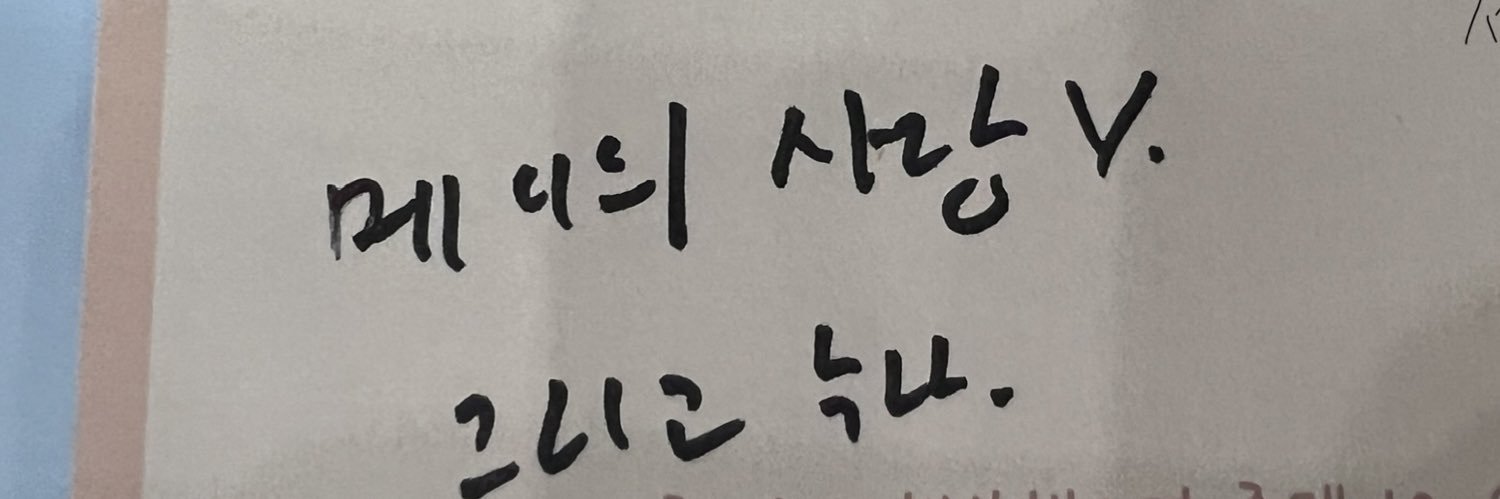 메이의 사랑 V.
그리고 누나.